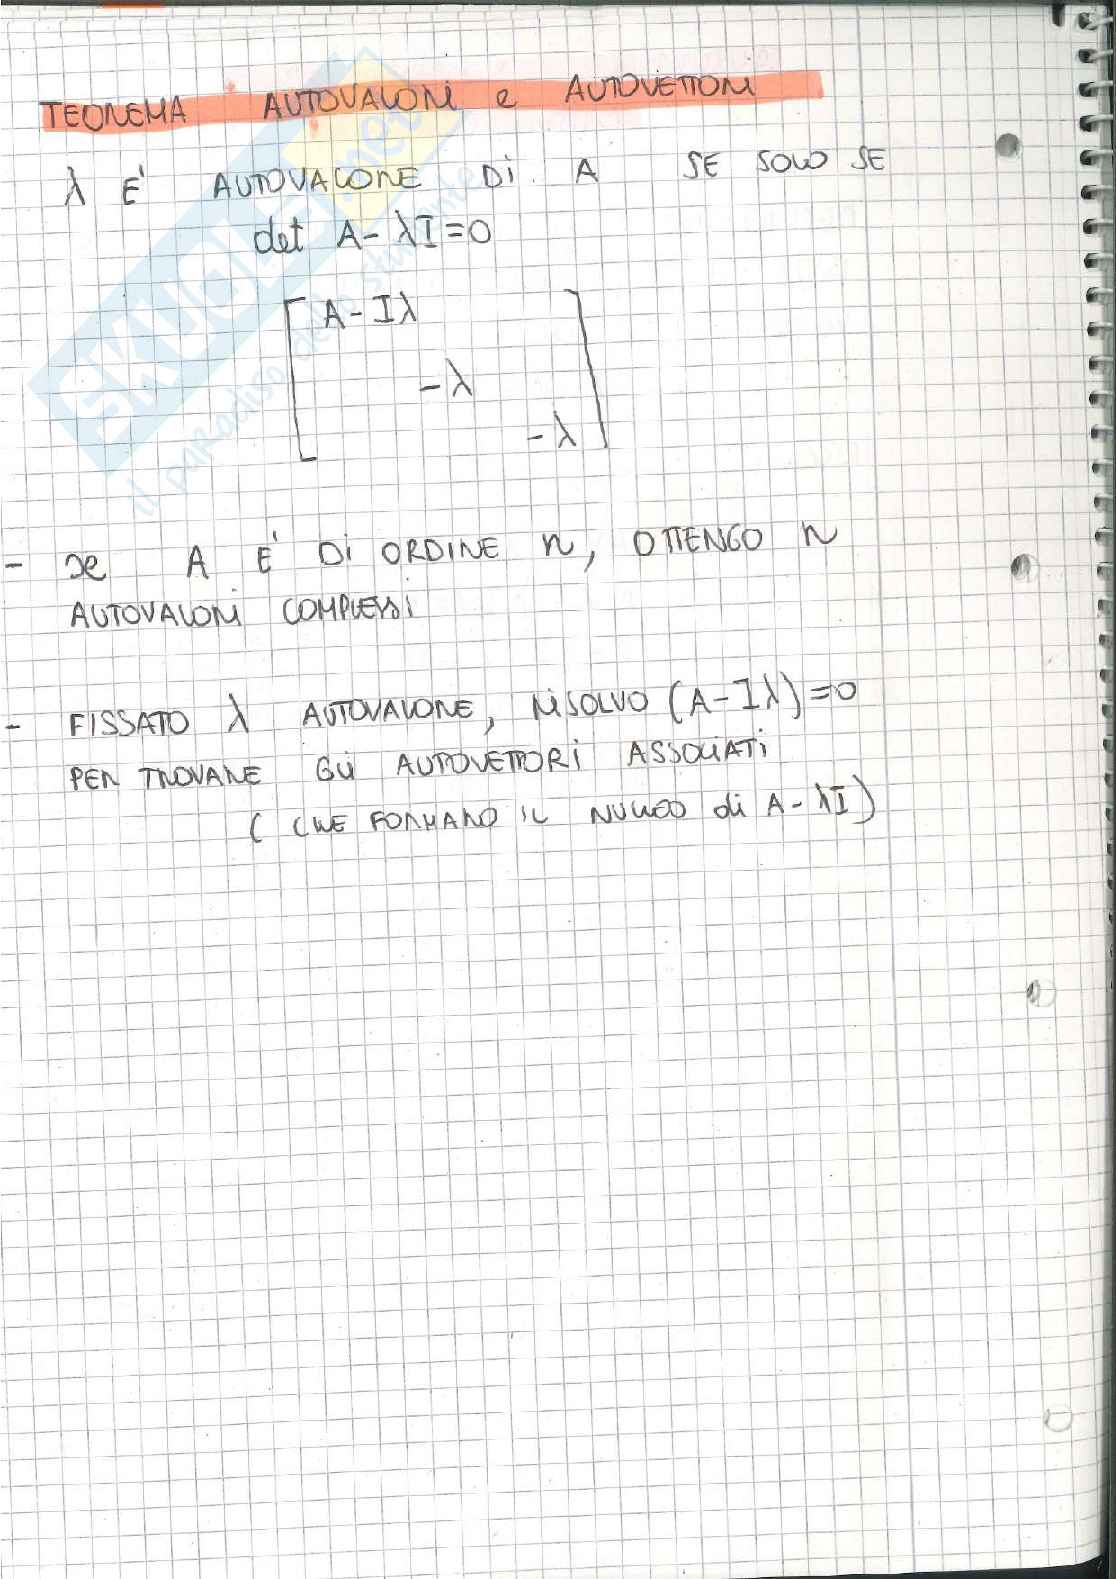 TEOREMA AUTOVALORI e AUTOVETTORI
λ E' AUTOVALORE Di A SE SOLO SE
det A-λI=0
A-Iλ
-λ
-λ
- se A E' Di ORDINE n, OTTENGO n
AUTOVALORI COMPLESSI
- FISSATO λ AUTOVALORE, RISOLVO (A-Iλ)=0
PER TROVARE GLI AUTOVETTORI ASSOCIATi
( CHE FORMANO IL NUCLEO di A-λI)
SKUOLA.net
il paradiso dello studente